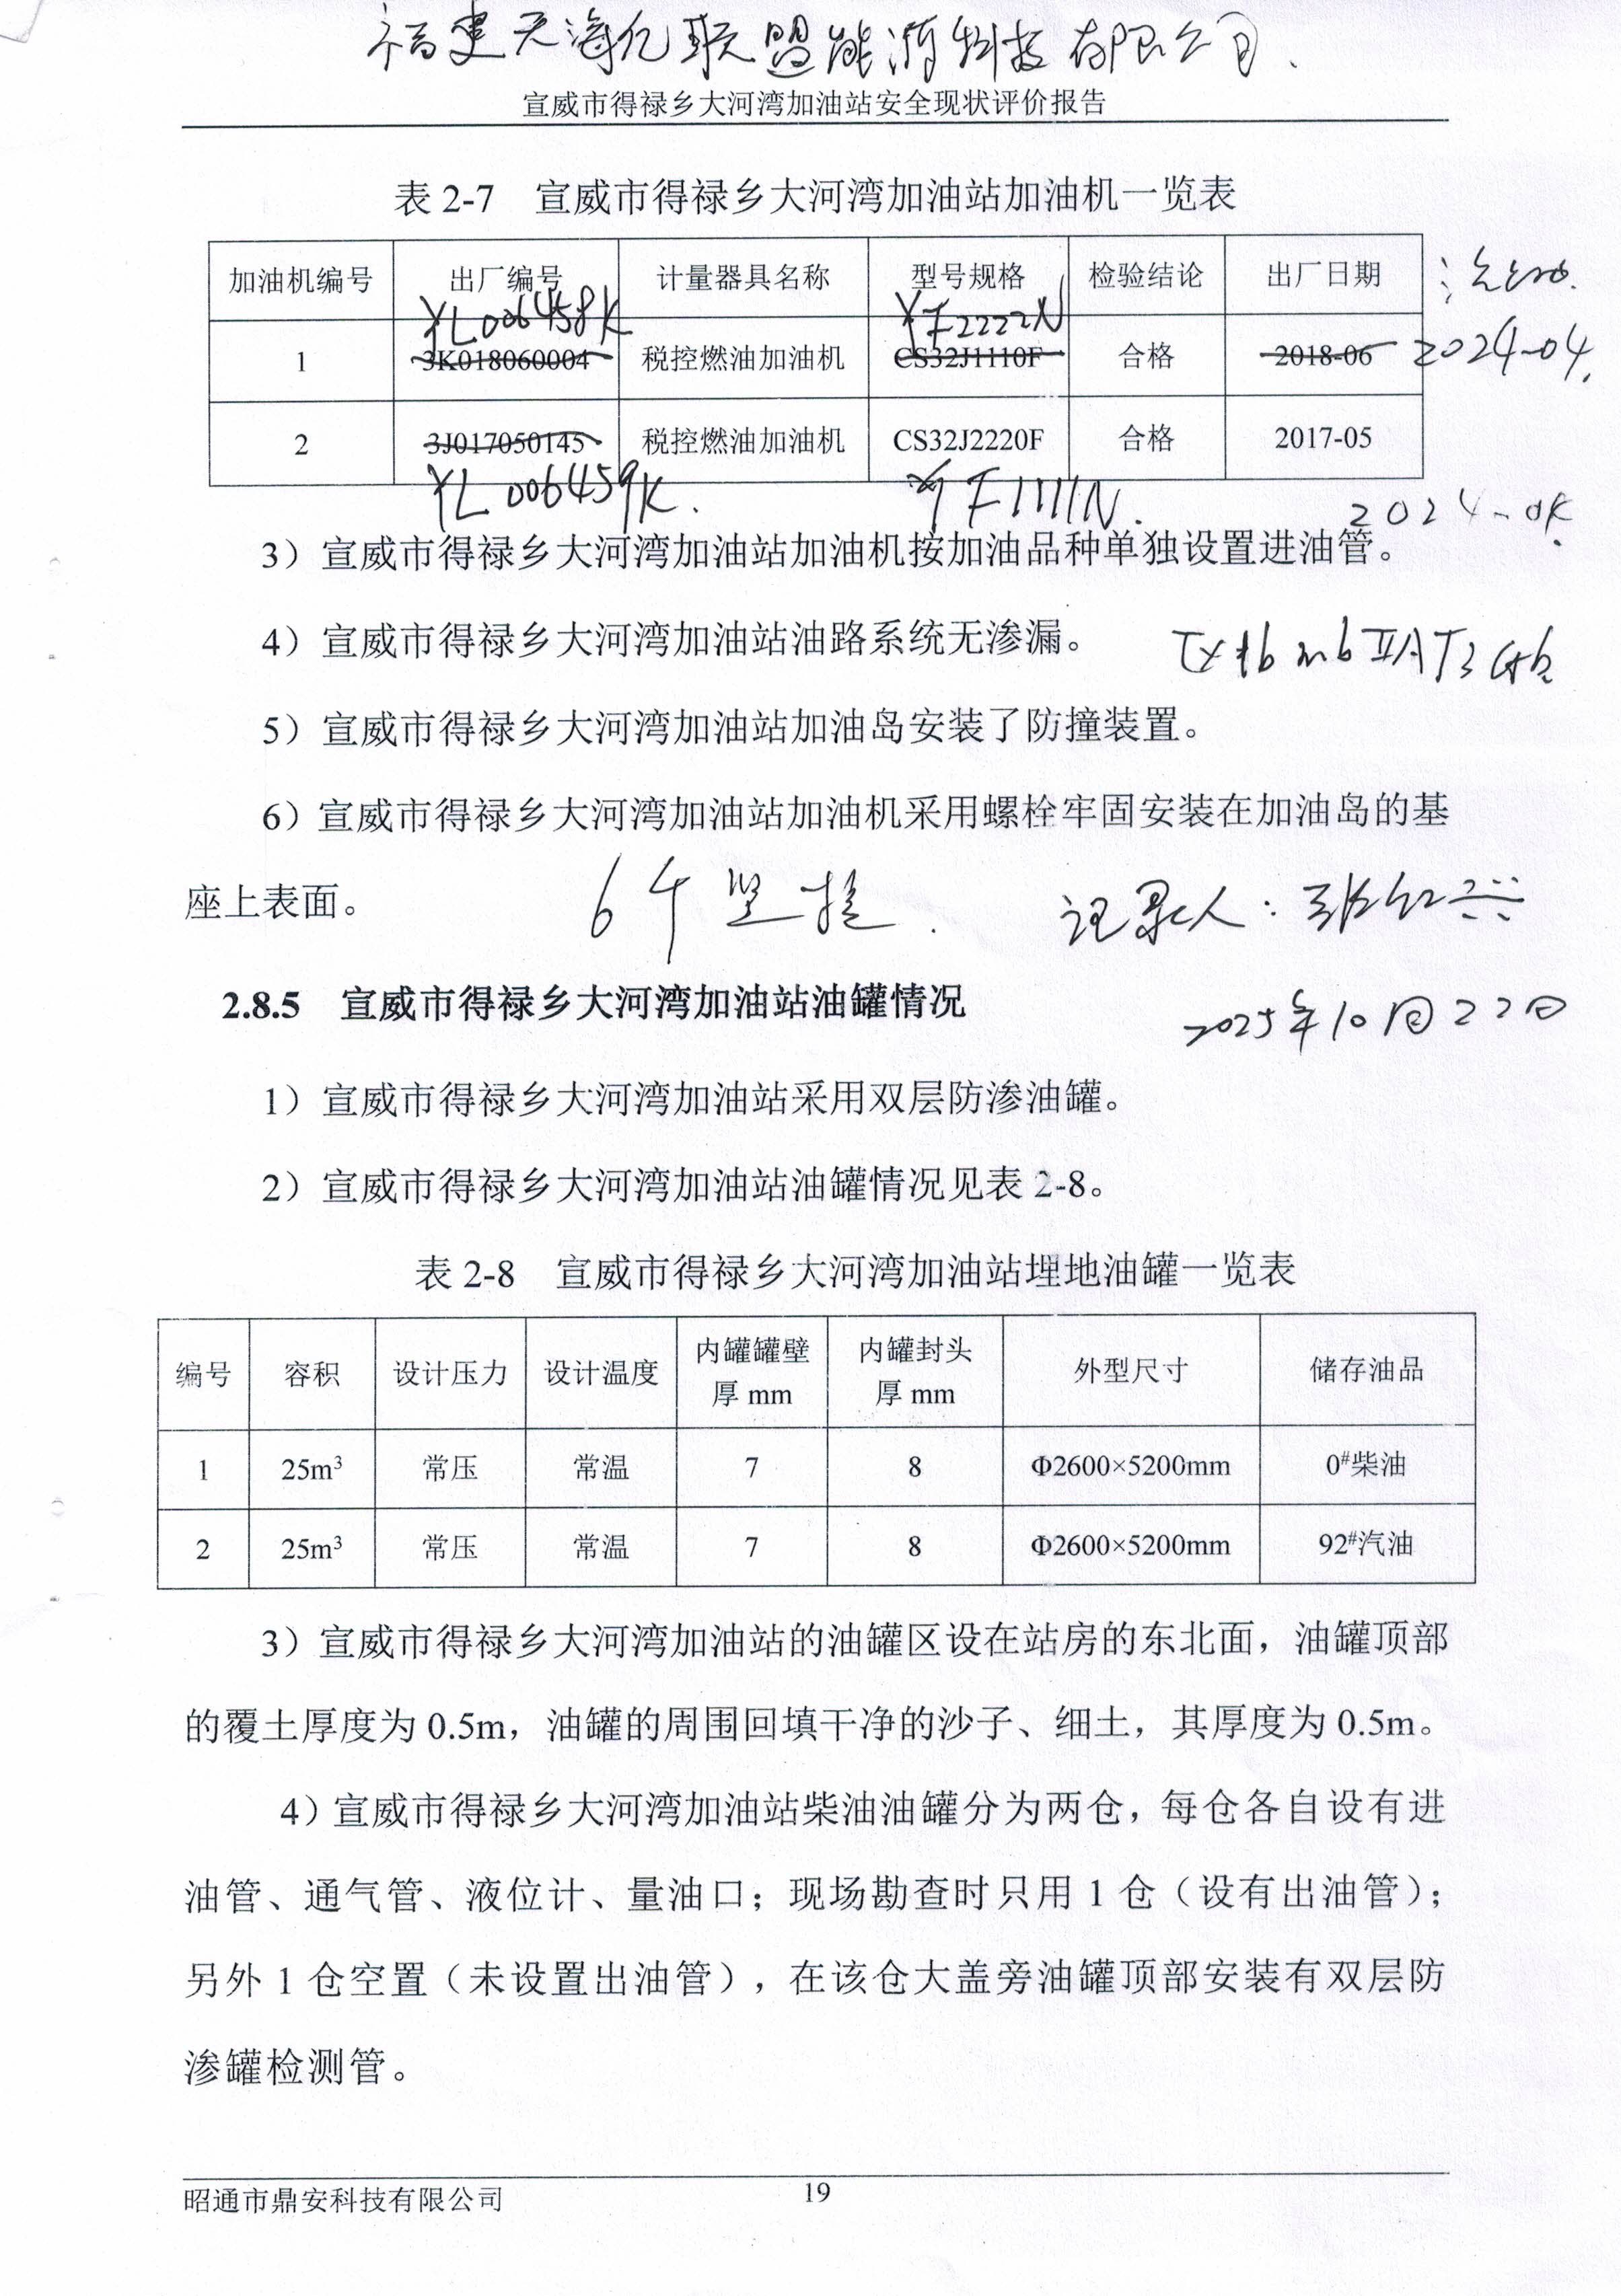 福建天海亿联盟能源科技有限公司.
宣威市得禄乡大河湾加油站安全现状评价报告
表 2-7 宣威市得禄乡大河湾加油站加油机一览表
加油机编号 出厂编号 计量器具名称 型号规格 检验结论 出厂日期
YL006458K YF2222N
1 3K018060004 税控燃油加油机 CS32J1110F 合格 2018-06 2024-04.
2 3J017050145 税控燃油加油机 CS32J2220F 合格 2017-05
YL006459K. YF1111N.
3）宣威市得禄乡大河湾加油站加油机按加油品种单独设置进油管。
4）宣威市得禄乡大河湾加油站油路系统无渗漏。
5）宣威市得禄乡大河湾加油站加油岛安装了防撞装置。
6）宣威市得禄乡大河湾加油站加油机采用螺栓牢固安装在加油岛的基
座上表面。
记录人：
2.8.5 宣威市得禄乡大河湾加油站油罐情况
2025年10月22日
1）宣威市得禄乡大河湾加油站采用双层防渗油罐。
2）宣威市得禄乡大河湾加油站油罐情况见表 2-8。
表 2-8 宣威市得禄乡大河湾加油站埋地油罐一览表
编号 容积 设计压力 设计温度 内罐罐壁厚 mm 内罐封头厚 mm 外型尺寸 储存油品
1 25m³ 常压 常温 7 8 Φ2600×5200mm 0#柴油
2 25m³ 常压 常温 7 8 Φ2600×5200mm 92#汽油
3）宣威市得禄乡大河湾加油站的油罐区设在站房的东北面，油罐顶部
的覆土厚度为 0.5m，油罐的周围回填干净的沙子、细土，其厚度为 0.5m。
4）宣威市得禄乡大河湾加油站柴油油罐分为两仓，每仓各自设有进
油管、通气管、液位计、量油口；现场勘查时只用 1 仓（设有出油管）；
另外 1 仓空置（未设置出油管），在该仓大盖旁油罐顶部安装有双层防
渗罐检测管。
昭通市鼎安科技有限公司 19